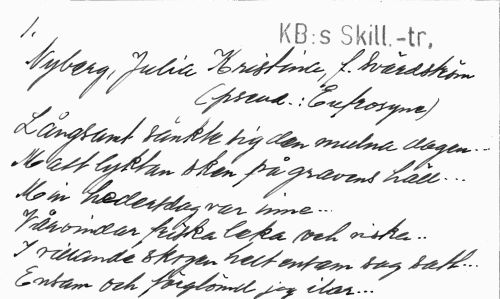 1.
KB:s Skill.-tr.
Nyberg, Julia Kristina, f. Svärdström
(pseud.: Eufrosyne)
Långsamt sänkte sig den mulna dagen...
Matt lyktan sken på gravens häll...
Min hedersdag var inne...
Vårvindar friska leka och viska..
I rillande skogen helt ensam jag satt...
Ensam och förglömd jag ilar...